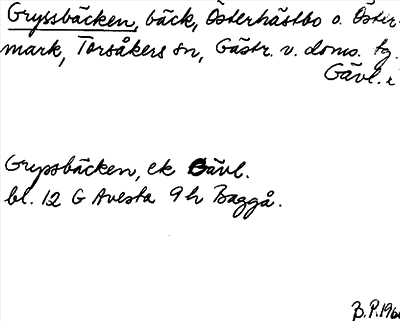 Gryssbäcken, bäck, Österhästbo o. Öster-
mark, Torsåkers sn, Gästr. v. doms. tg.
Gävl.
Grypsbäcken, ek Gävl.
bl. 12 G Avesta 9 h Baggå.
B.P. 196